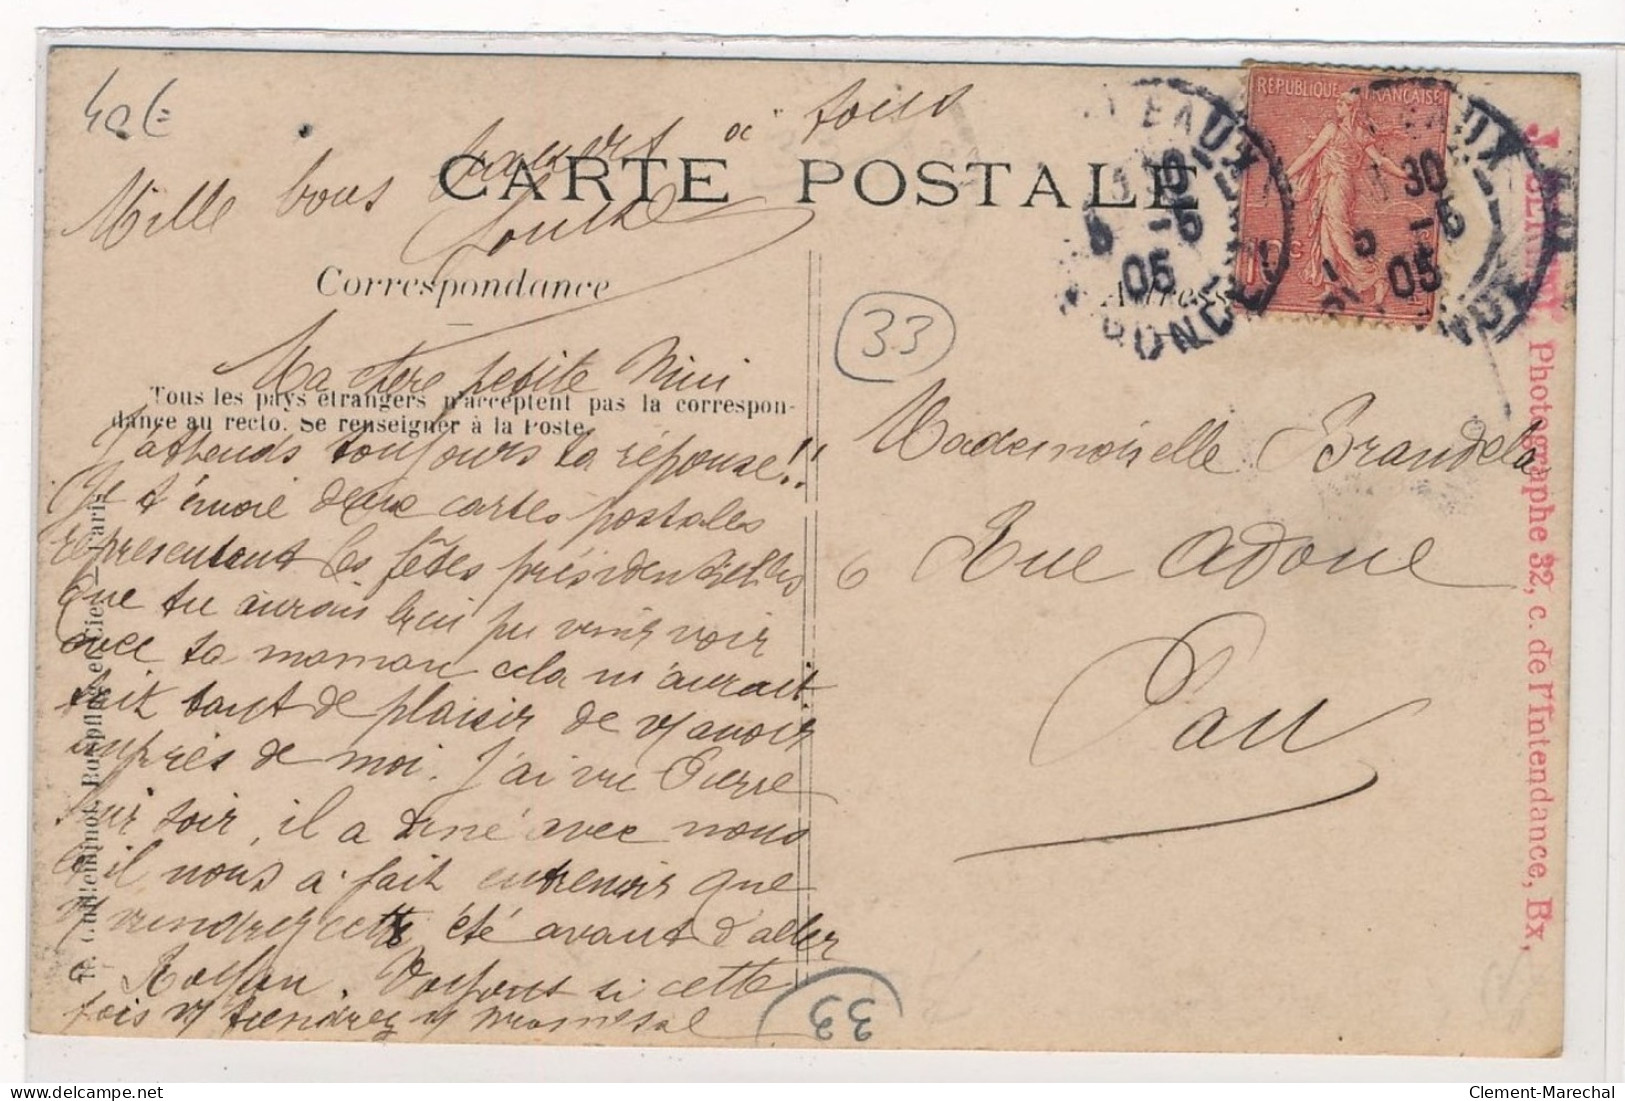 40€
Mille bons baisers à tous
Louise
CARTE POSTALE
Correspondance
Adresse
RÉPUBLIQUE FRANÇAISE
10c
BORDEAUX
30
5 -5
05
GIRONDE
33
Tous les pays étrangers n'acceptent pas la correspon-
dance au recto. Se renseigner à la Poste.
Ma chère petite Nini
J'attends toujours ta réponse!!
Je t'envoie deux cartes postales
representant les fêtes présidentielles
que tu aurais bien pu venir voir
avec ta maman cela m'aurait
fait tant de plaisir de vs avoir
auprès de moi. J'ai vu Pierre
hier soir, il a diné avec nous
et il nous a fait entrevoir que
vs viendrez cette été avant d'aller
à Royan. Voyons si cette
fois vs tiendrez vs promesse
Mademoiselle Brandela
6 Rue Adoue
Pau
33
J. SERENI, Photographe 32, c. de l'Intendance, Bx,
Clement-Marechal